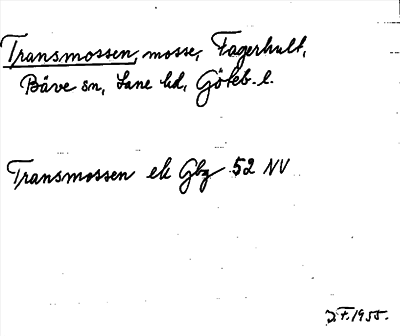 Transmossen, mosse, Fagerhult,
Bäve sn, Lane hd, Göteb. l.
Transmossen ek Gbg 52 NV
D.F. 1955.